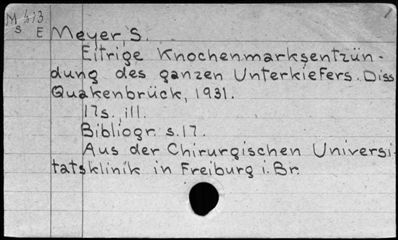 M 4/33
S E
Meyer S.
Eitrige Knochenmarksentzün-
dung des ganzen Unterkiefers. Diss
Quakenbrück, 1931.
17s. ill.
Bibliogr. s.17.
Aus der Chirurgischen Universi-
tatsklinik in Freiburg i. Br.